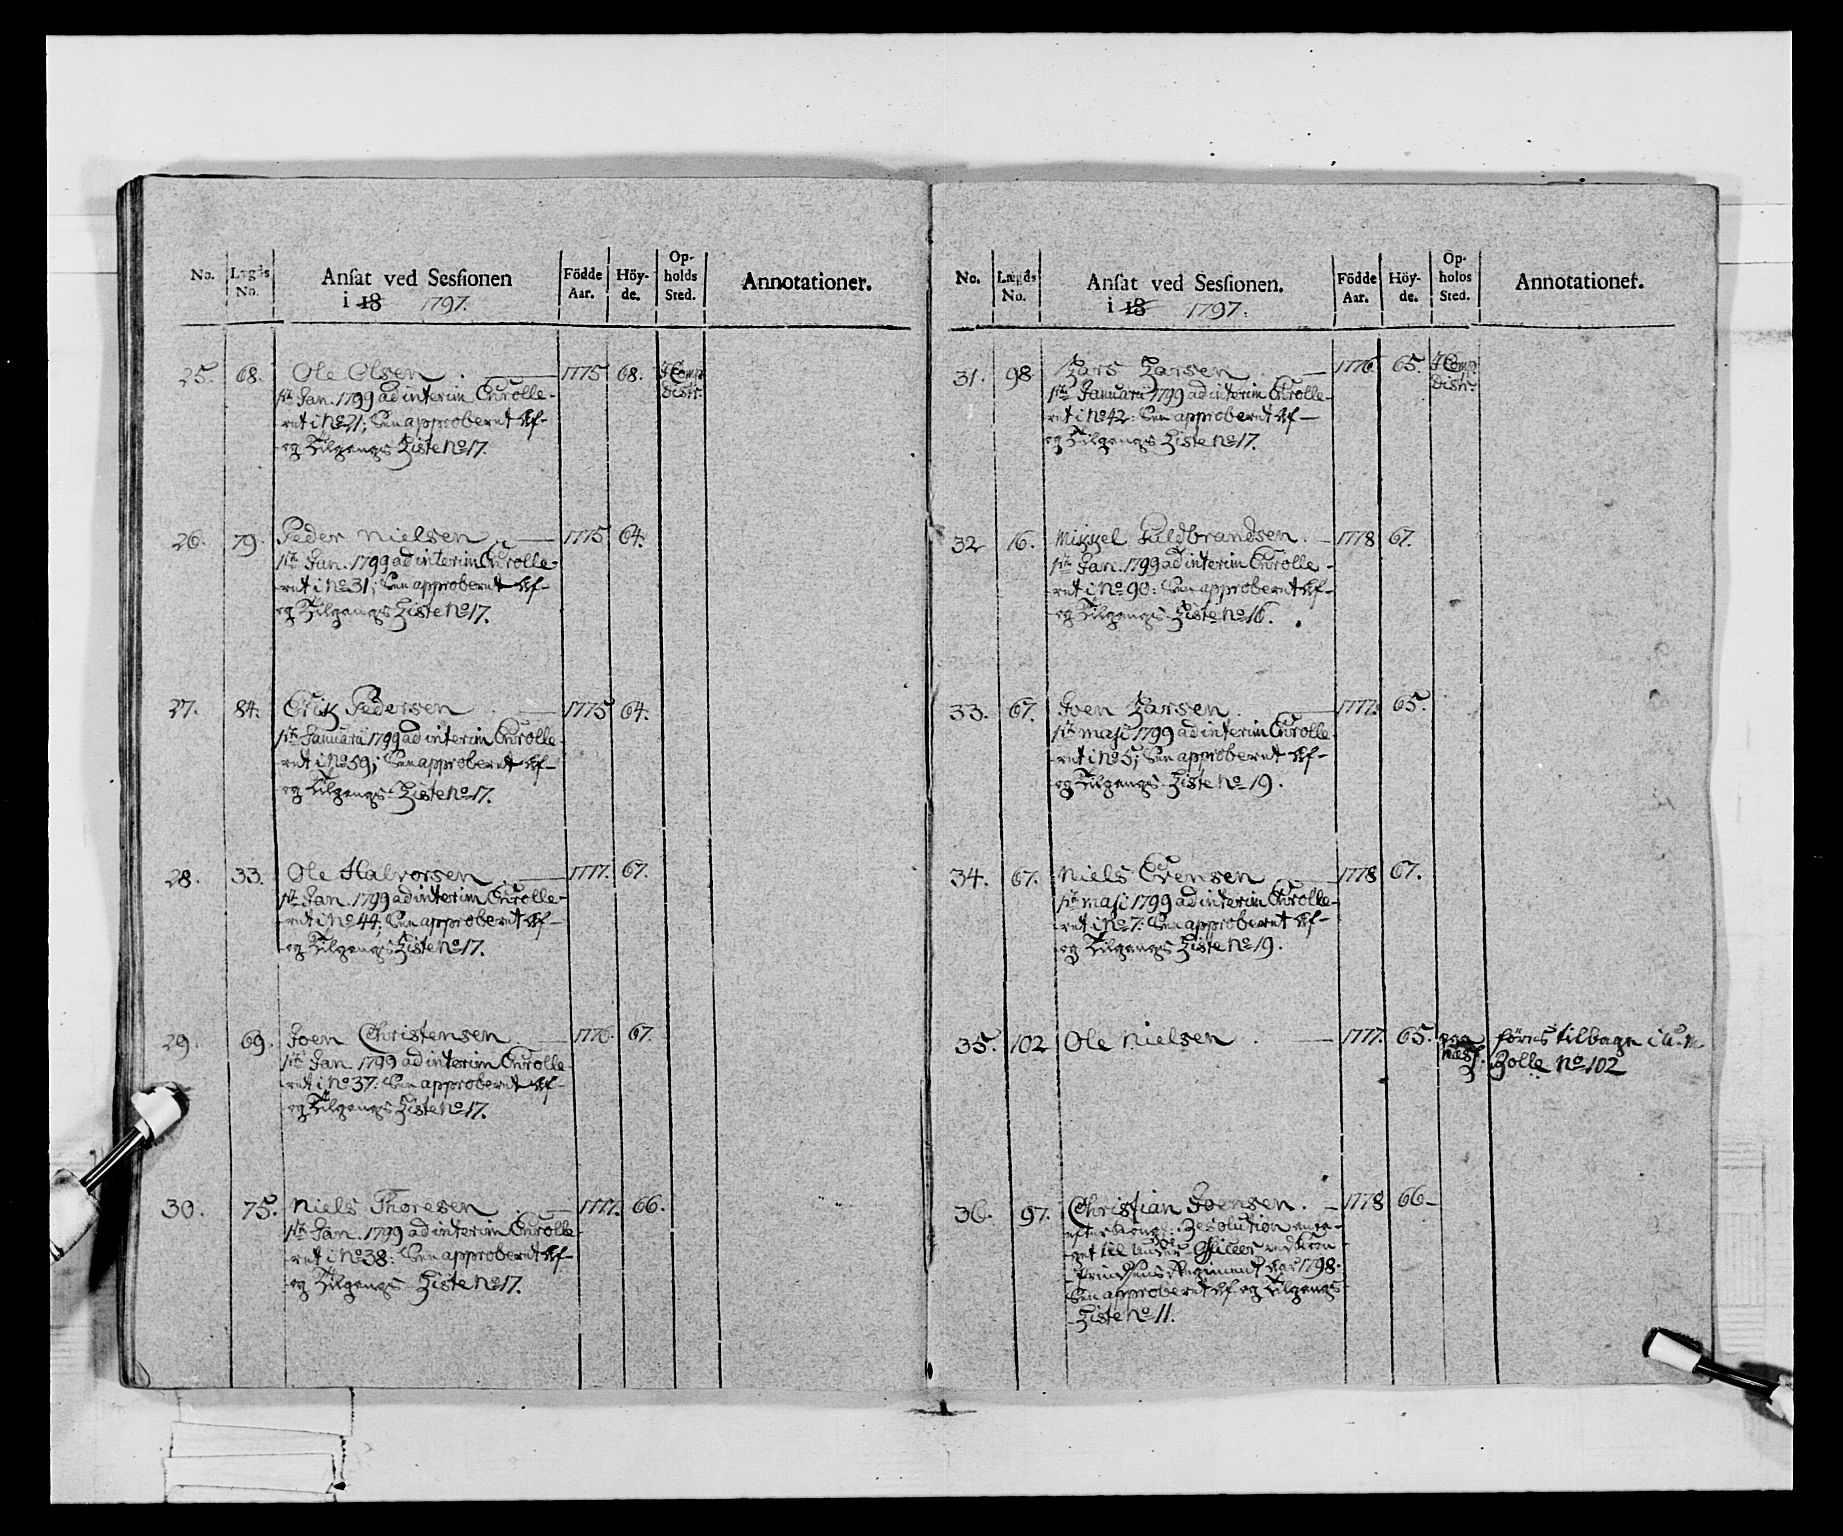 No. Lægds No. Anſat ved Sesſionen i 18 1797. Födde Aar. Höy-de. Op-holds Sted. Annotationer.
25. 68. Ole Olsen. 1775 68. I Comp Distr.
pr Jan. 1799 ad interim Enrolle-
ret i No 21; Sen approberet Af-
og Tilgangs Liste No 17.
26. 79. Peder Nielsen 1775 64.
pr Jan. 1799 ad interim Enrolle-
ret i No 31; Sen approberet Af-
og Tilgangs Liste No 17.
27. 84. Erik Pedersen 1775 64.
pr Januarii 1799 ad interim Enrolle-
ret i No 59; Sen approberet Af-
og Tilgangs Liste No 17.
28. 33. Ole Halvorsen 1777. 67.
pr Jan. 1799 ad interim Enrolle-
ret i No 44; Sen approberet Af-
og Tilgangs Liste No 17.
29. 69. Joen Christensen 1776. 67.
pr Jan. 1799 ad interim Enrolle-
ret i No 37: Sen approberet Af-
og Tilgangs Liste No 17.
30. 75. Niels Thoresen 1777. 66.
pr Jan. 1799 ad interim Enrolle-
ret i No 38: Sen approberet Af-
og Tilgangs Liste No 17.
No. Lægds No. Anſat ved Sesſionen. i 18 1797. Födde Aar. Höy-de. Op-holds Sted. Annotationer.
31. 98 Lars Larsen 1776 65. I Comp Distr.
pr Januarii 1799 ad interim Enrolle-
ret i No 42: Sen approberet Af-
og Tilgangs Liste No 17.
32 16. Mikkel Guldbrandsen. 1778 67.
pr Jan. 1799 ad interim Enrolle-
ret i No 90: Sen approberet Af-
og Tilgangs Liste No 16.
33. 67. Joen Larsen 1777. 65.
pr Maji 1799 ad interim Enrolle-
ret i No 5; Sen approberet Af-
og Tilgangs Liste No 19.
34. 67. Niels Evensen 1778 67.
pr Maji 1799 ad interim Enrolle-
ret i No 7: Sen approberet Af-
og Tilgangs Liste No 19.
35. 102 Ole Nielsen 1777. 65. Næs föres tilbage i
Rolle No 102
36. 97. Christian Joensen. 1778 66
efter Kongl: Resolution anta-
get til Under Officer ved Kron
Prindsens Regiment Aar 1798.
Sen approberet Af og Tilgangs
Liste No 11.